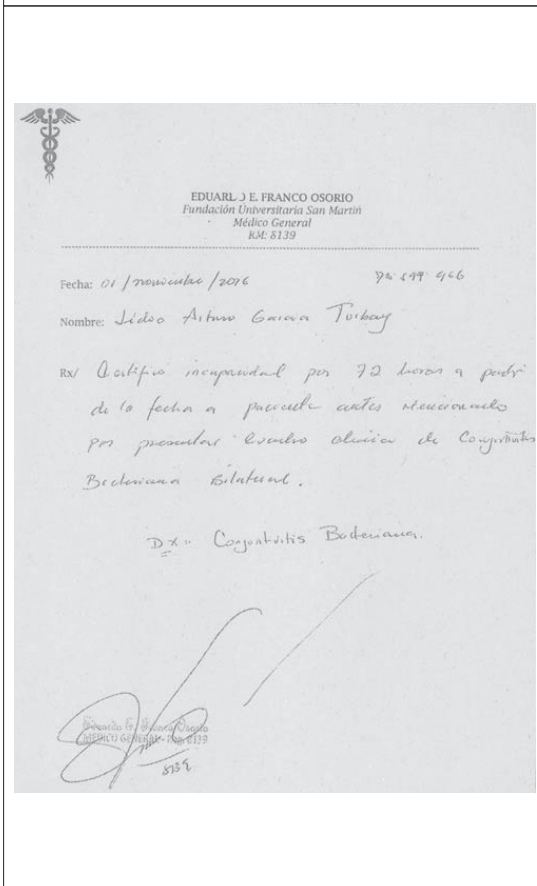 EDUARDO E. FRANCO OSORIO
Fundación Universitaria San Martín
Médico General
RM: 8139
Fecha: 01/noviembre/2016
Nombre: Lidio Arturo Garcia Turbay
Rx/ Certifico incapacidad por 72 horas a partir
de la fecha a paciente antes mencionado
por presentar cuadro clinico de Conjuntivitis
Bacteriana Bilateral.
Dx: Conjuntivitis Bacteriana.
Eduardo E. Franco Osorio
MEDICO GENERAL - Reg. 8139
8139